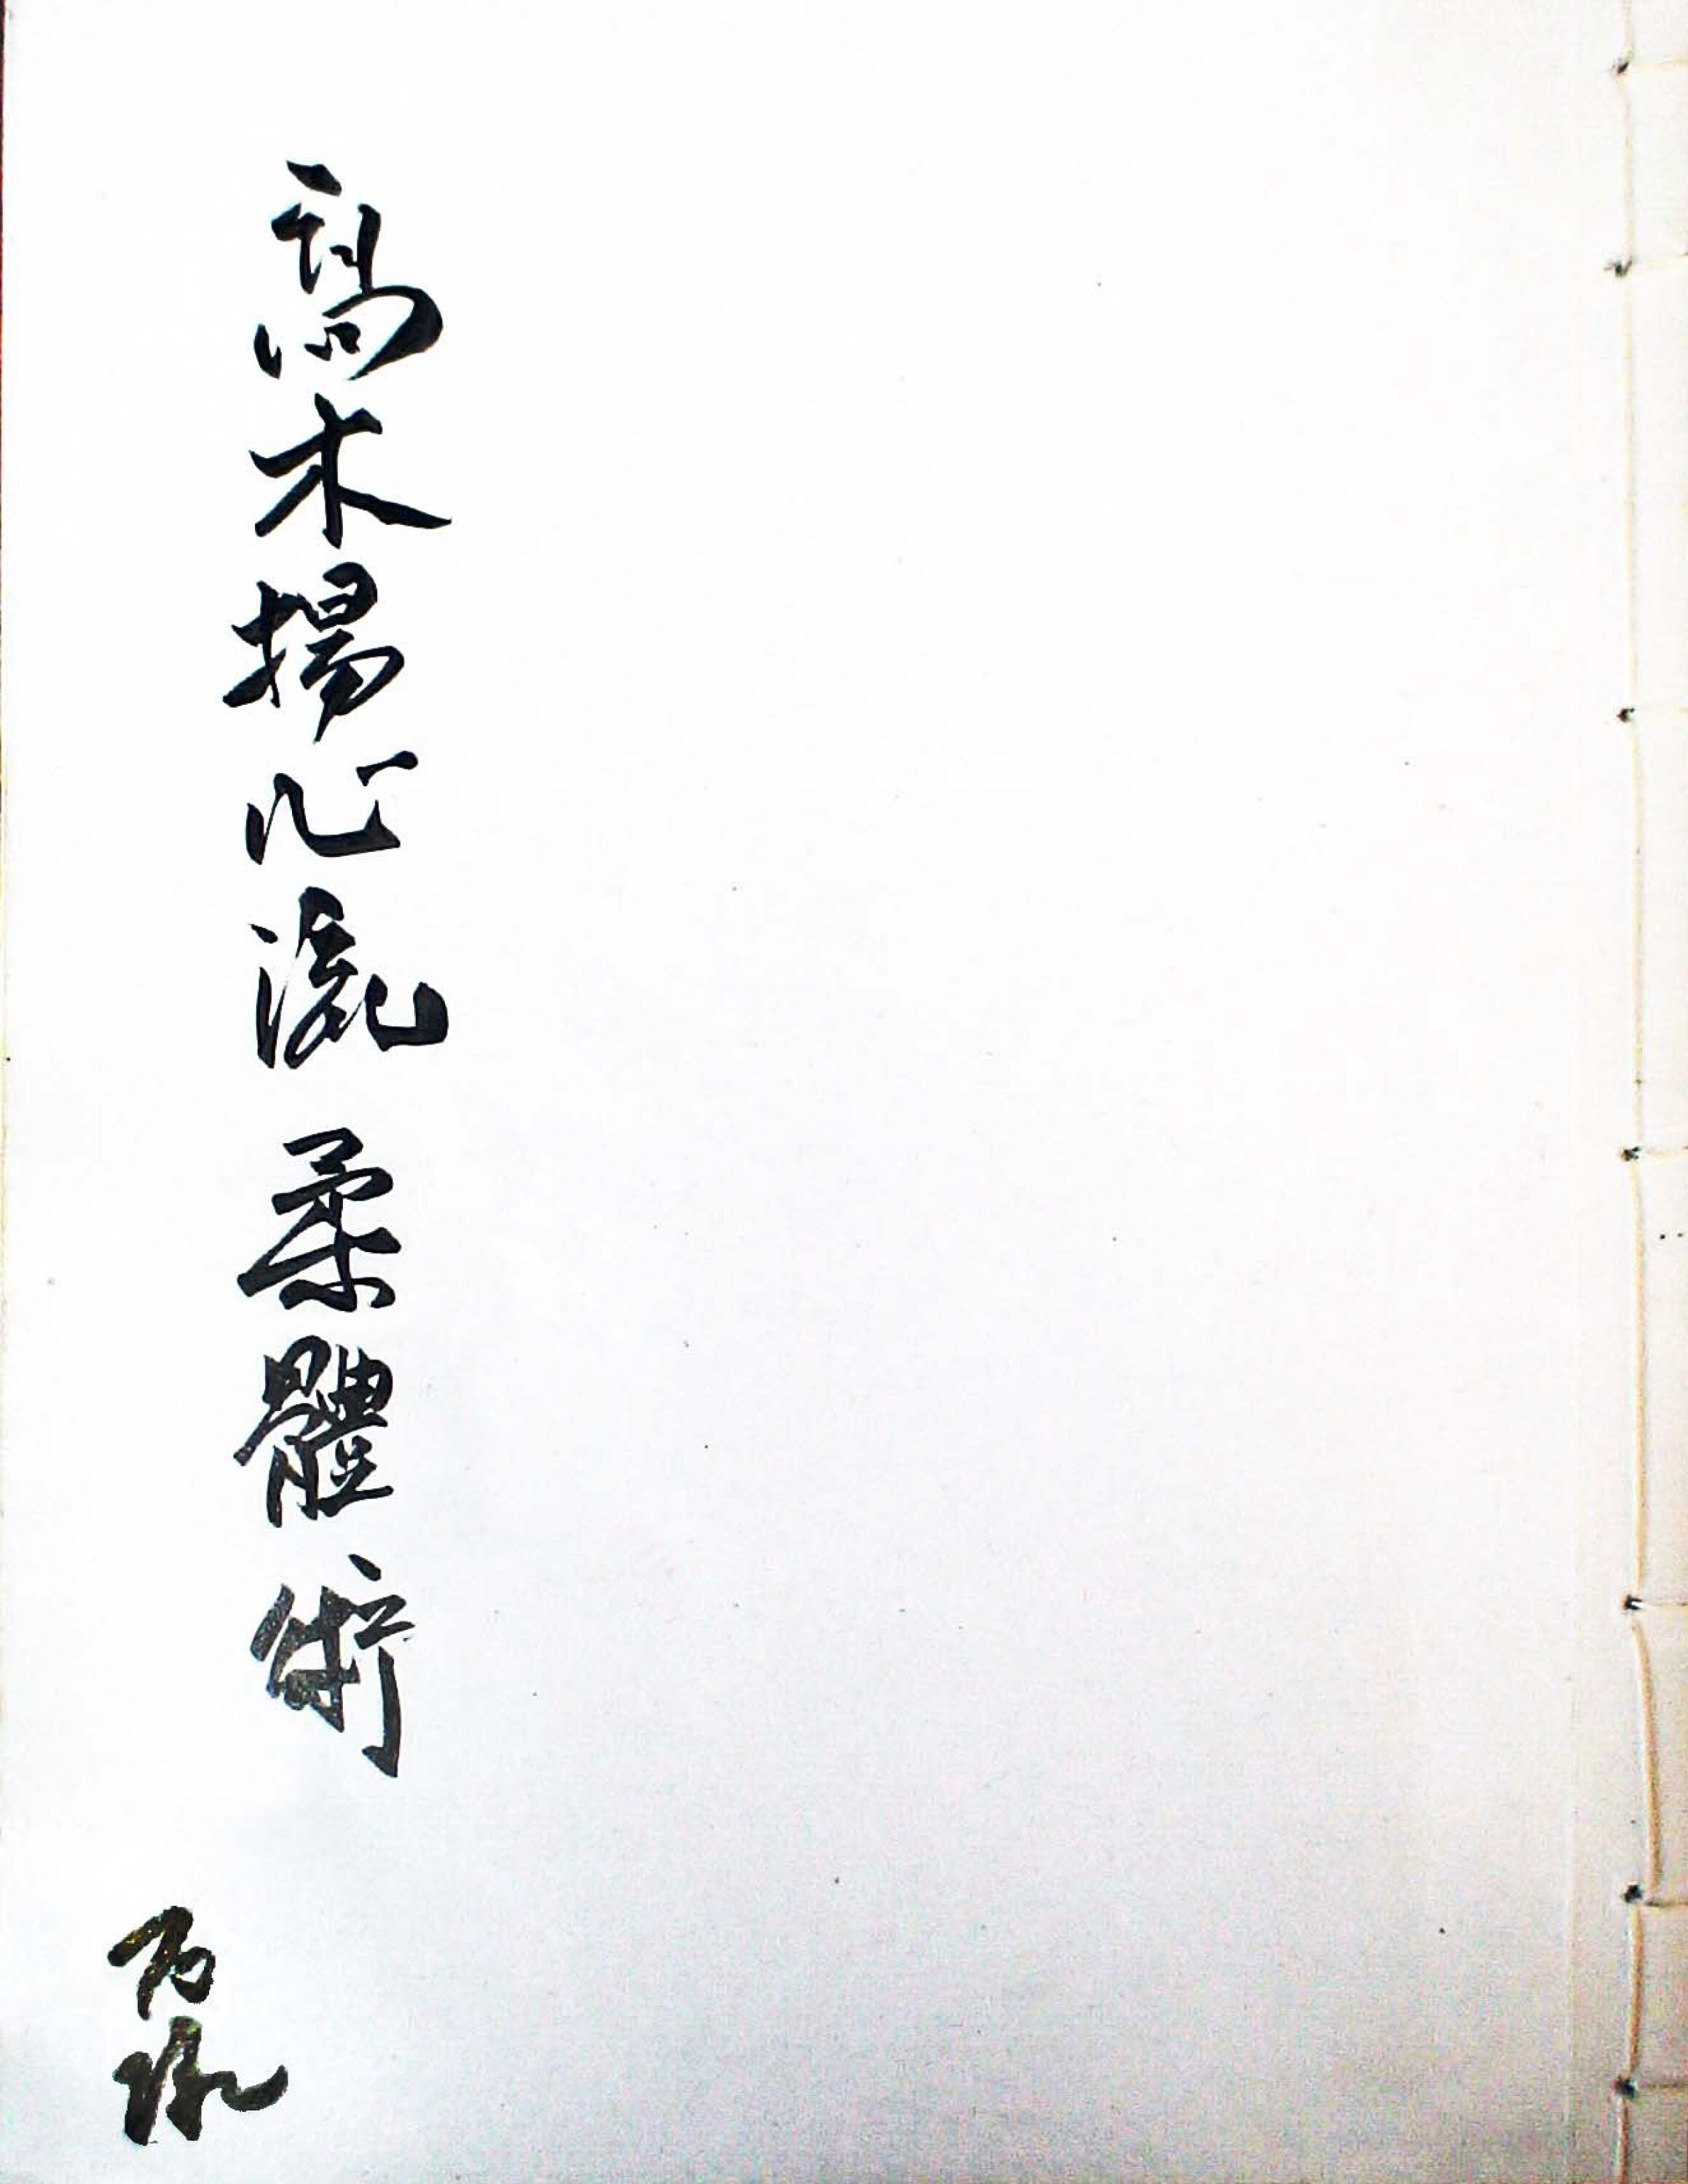 高木揚心流 柔體術